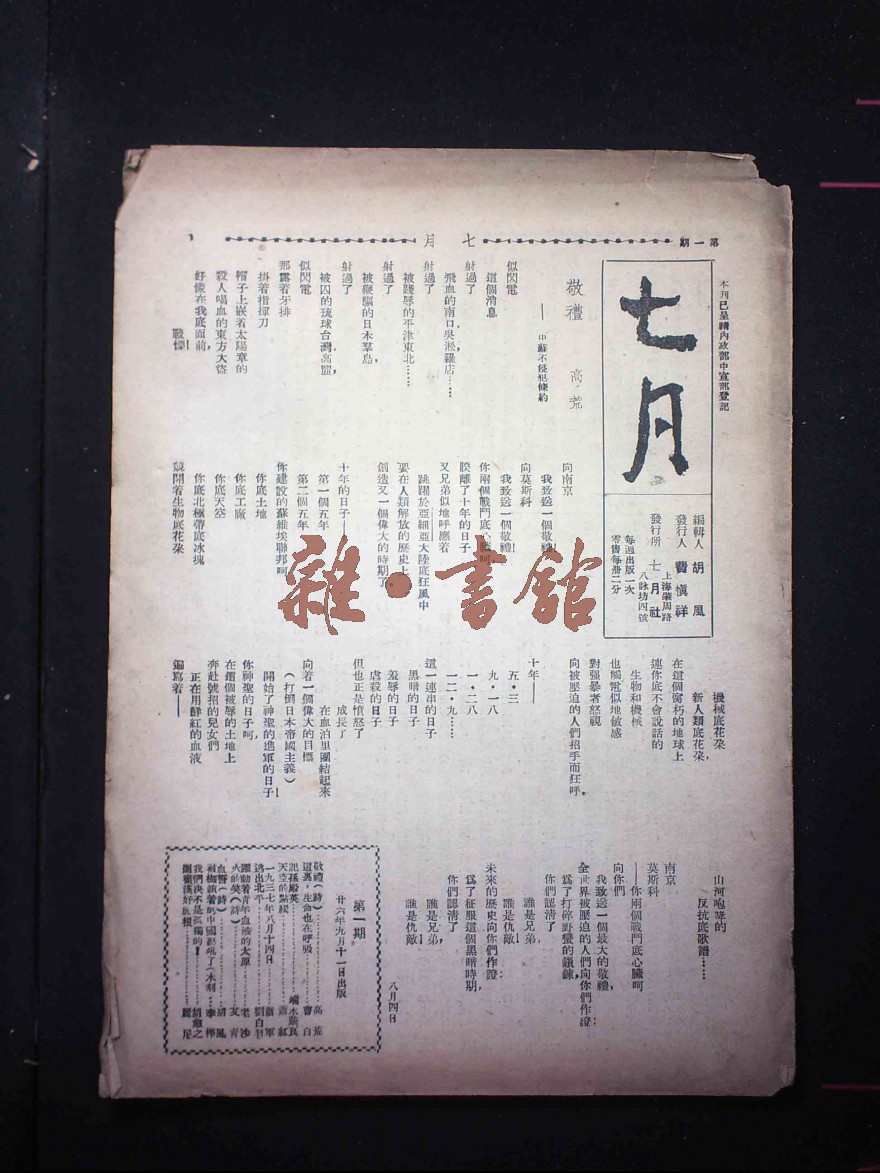 第一期
七月
一
本刊已呈請內政部中宣部登記
七月
編輯人 胡風
發行人 費慎祥
發行所 七月社
上海肇周路
八詠坊四號
每週出版一次
零售每冊二分
敬禮 高荒
——中蘇不侵犯條約
似閃電
這個消息
射過了
飛血的南口吳淞羅店……
射過了
被踐辱的平津東北……
射過了
被鞭驅的日本羣島,
射過了
被囚的琉球台灣高麗
似閃電
那露着牙排
掛着指揮刀
帽子上嵌着太陽章的
殺人喝血的東方大盜
好像在我底面前,
戰慄!
向南京
我致送一個敬禮!
向莫斯科
我致送一個敬禮!
你兩個戰鬥底心臟呵
睽離了十年的日子
又兄弟似地呼應着
跳躍於亞細亞大陸底狂風中
要在人類解放的歷史上
創造又一個偉大的時期了
十年的日子——
第一個五年
第二個五年
你建設的蘇維埃聯邦呵
你底土地
你底工廠
你底天空
你底北極帶底冰塊
競開着生物底花朶
機械底花朶,
新人類底花朶
在這個腐朽的地球上
連你底不會說話的
生物和機械
也觸電似地敏感
對强暴者怒視
向被壓迫的人們招手而狂呼。
十年——
五·三
九·一八
一·二八
一二·九……
這一連串的日子
黑暗的日子
羞辱的日子
虐殺的日子
但也正是憤怒了
成長了
在血泊里團結起來
向着一個偉大的目標
(打倒日本帝國主義)
開始了神聖的進軍的日子!
你神聖的日子呵,
在這個被辱的土地上
奔赴號招的兒女們
正在用鮮紅的血液
編寫着——
山河咆哮的
反抗底歌譜……
南京
莫斯科
——你兩個戰鬥底心臟呵
向你們
我致送一個最大的敬禮,
全世界被壓迫的人們向你們作證:
爲了打碎野蠻的鎖鍊,
你們認清了
誰是兄弟,
誰是仇敵!
未來的歷史向你們作證:
爲了征服這個黑暗時期,
你們認清了
誰是兄弟,
誰是仇敵!
八月四日
第一期
廿六年九月十一日出版
敬禮(詩)……高荒
這裏,生命也在呼吸……曹白
記孫殿英……端木蕻良
天空的點綴……蕭紅
一九三七年八月十四日……蕭軍
逃出北平……劉白羽
躍動着青年血液的太原……老沙
火的笑(詩)……艾青
血誓(詩)……胡風
被枷鎖着的中國怒吼了(木刻)……李樺
我們决不是孤獨的!……胡愈之